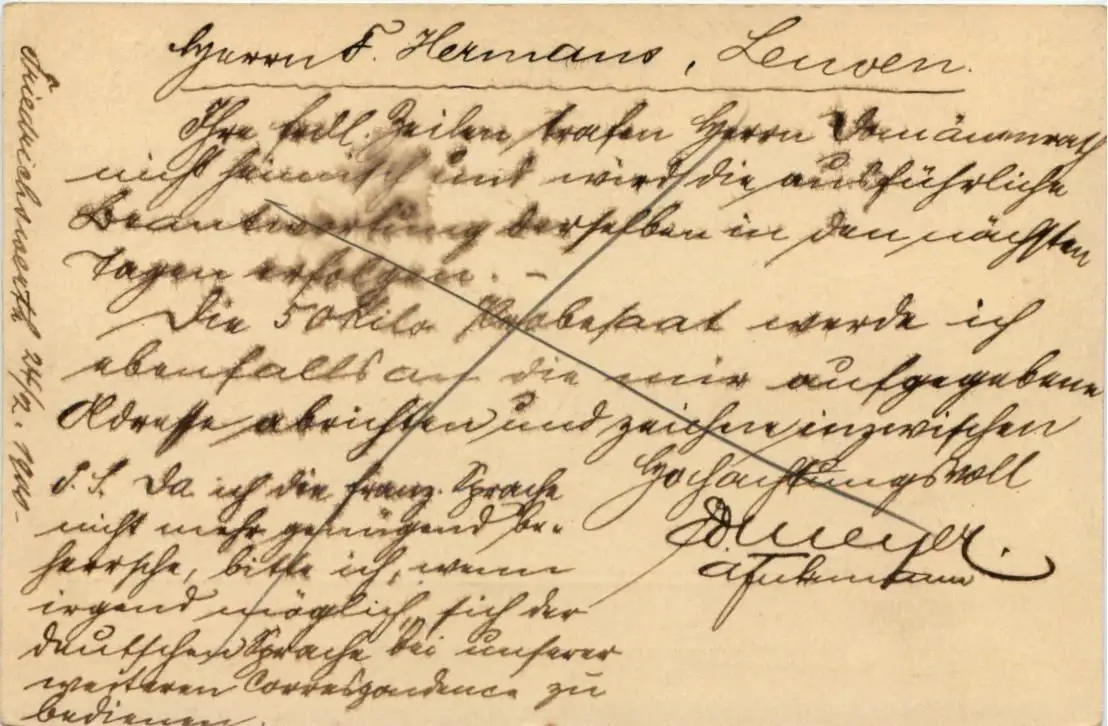 Herrn F. Hermans, Leuven.
Ihre frdl. Zeilen trafen Herrn Domänenrath
nicht heimisch und wird die ausführliche
Beantwortung derselben in den nächsten
Tagen erfolgen. –
Die 50 Kilo Probesaat werde ich
ebenfalls an die mir aufgegebene
Adresse abrichten und zeichne inzwischen
Hochachtungsvoll
Meyer.
P. S. Da ich die franz. Sprache
nicht mehr genügend be-
herrsche, bitte ich, wenn
irgend möglich, sich der
deutschen Sprache bei unserer
weiteren Correspondence zu
bedienen.
Friedrichswerth 24/2. 1900.